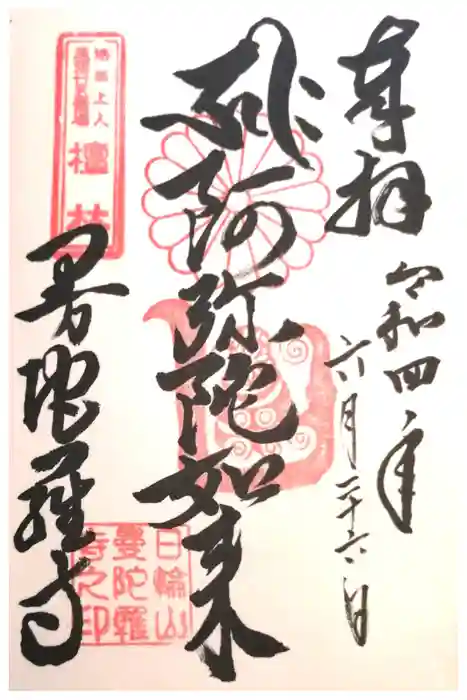 奉拝
令和四年
六月二十六日
阿弥陀如来
曼陀羅寺
檀林
日輪山
曼陀羅
寺之印